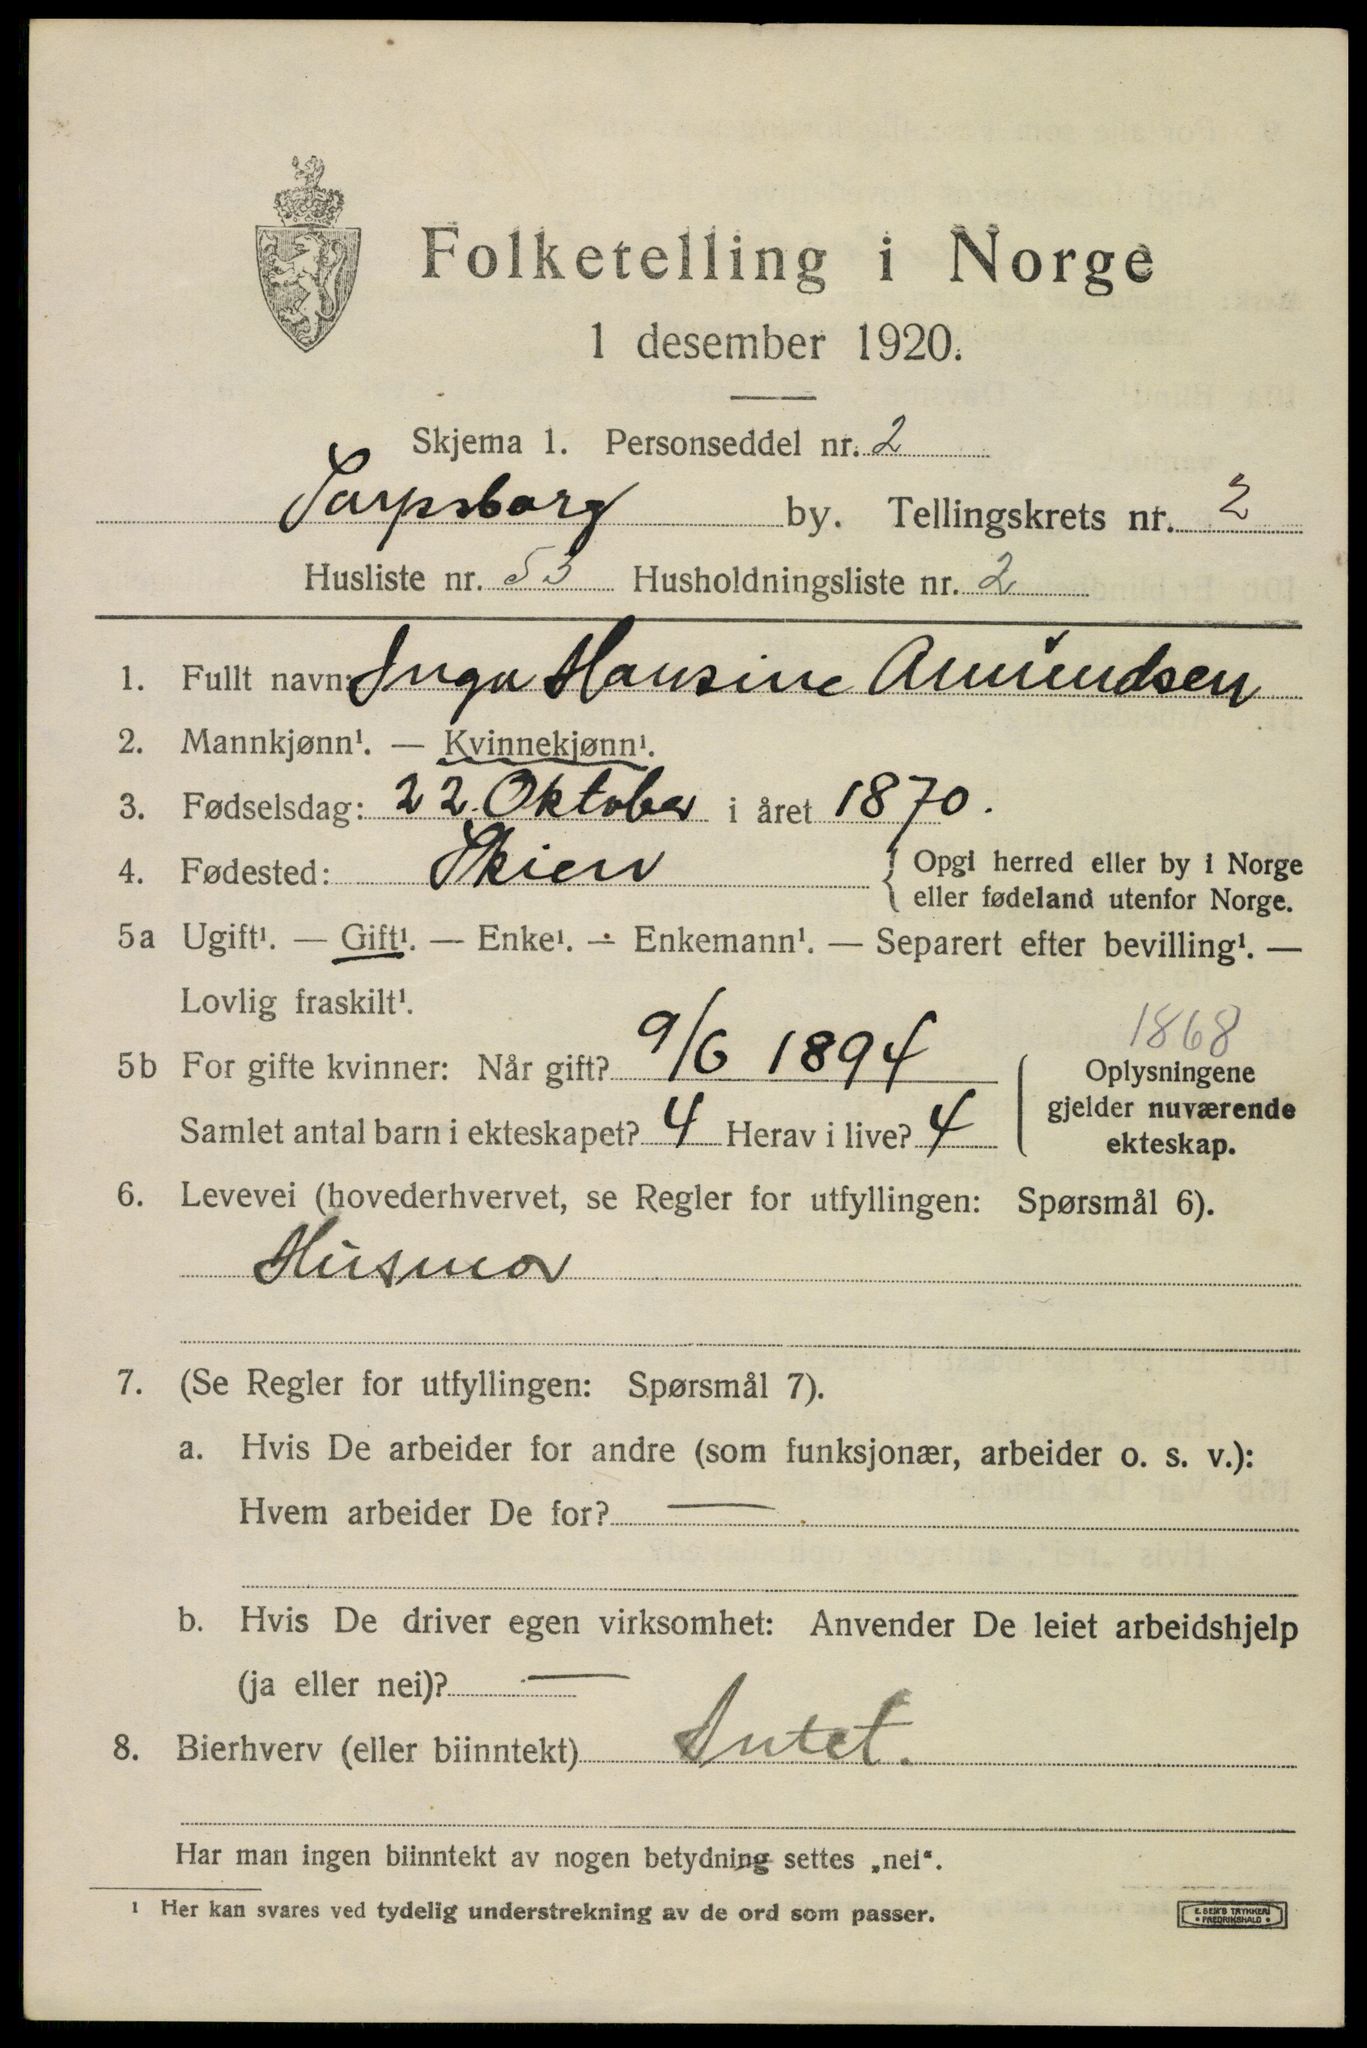 Folketelling i Norge
1 desember 1920.
Skjema 1. Personseddel nr. 2
Sarpsborg by. Tellingskrets nr. 2
Husliste nr. 53 Husholdningsliste nr. 2
1. Fullt navn: Inga Hansine Amundsen
2. Mannkjønn¹. — Kvinnekjønn¹.
3. Fødselsdag: 22 Oktober i året 1870.
4. Fødested: Skien { Opgi herred eller by i Norge
eller fødeland utenfor Norge.
5a Ugift¹. — Gift¹. — Enke¹. — Enkemann¹. — Separert efter bevilling¹. —
Lovlig fraskilt¹.
1868
5b For gifte kvinner: Når gift? 9/6 1894
Samlet antal barn i ekteskapet? 4 Herav i live? 4
Oplysningene
gjelder nuværende
ekteskap.
6. Levevei (hovederhvervet, se Regler for utfyllingen: Spørsmål 6).
Husmor
7. (Se Regler for utfyllingen: Spørsmål 7).
a. Hvis De arbeider for andre (som funksjonær, arbeider o. s. v.):
Hvem arbeider De for? —
b. Hvis De driver egen virksomhet: Anvender De leiet arbeidshjelp
(ja eller nei)? —
8. Bierhverv (eller biinntekt) Intet.
Har man ingen biinntekt av nogen betydning settes „nei“.
¹ Her kan svares ved tydelig understrekning av de ord som passer.
E. SEM'S TRYKKERI
FREDRIKSHALD